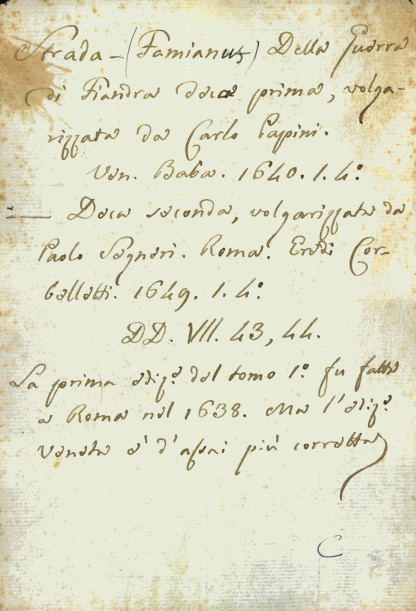 Strada - (Famianus) Della Guerra
di Fiandra deca prima, volga-
rizzata da Carlo Papini.
Ven. Baba. 1640. 1. 4º.
— Deca seconda, volgarizzata da
Paolo Segneri. Roma. Eredi Cor-
belletti. 1649. 1. 4º.
DD. VII. 43, 44.
La prima ediz.e del tomo 1º. fu fatta
a Roma nel 1638. Ma l'ediz.e
veneta è d'assai più corretta
C